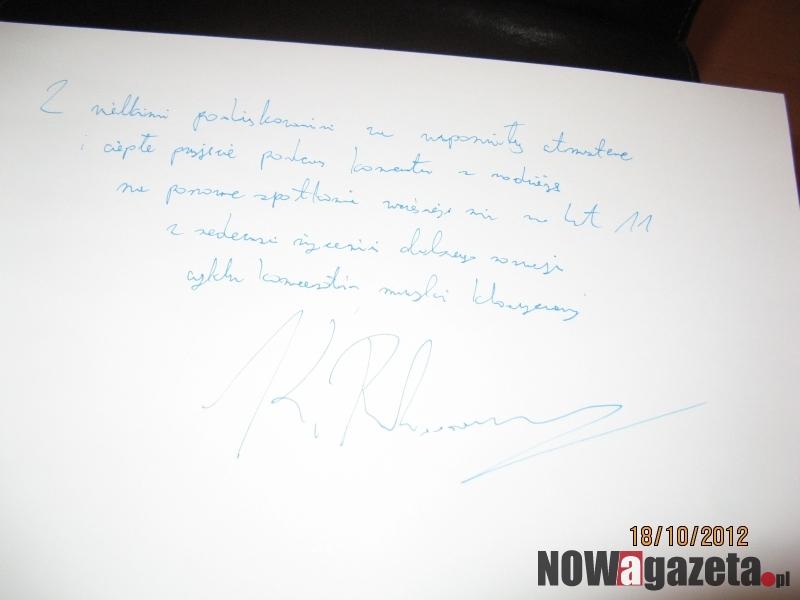 Z wielkimi podziękowaniami za wspaniałą atmosferę
i ciepłe przyjęcie podczas koncertu z nadzieją
na ponowne spotkanie wcześniej niż za lat 11
z serdecznymi życzeniami dalszego rozwoju
cyklu koncertów muzyki klasycznej
K.
18/10/2012
NOWagazeta.pl